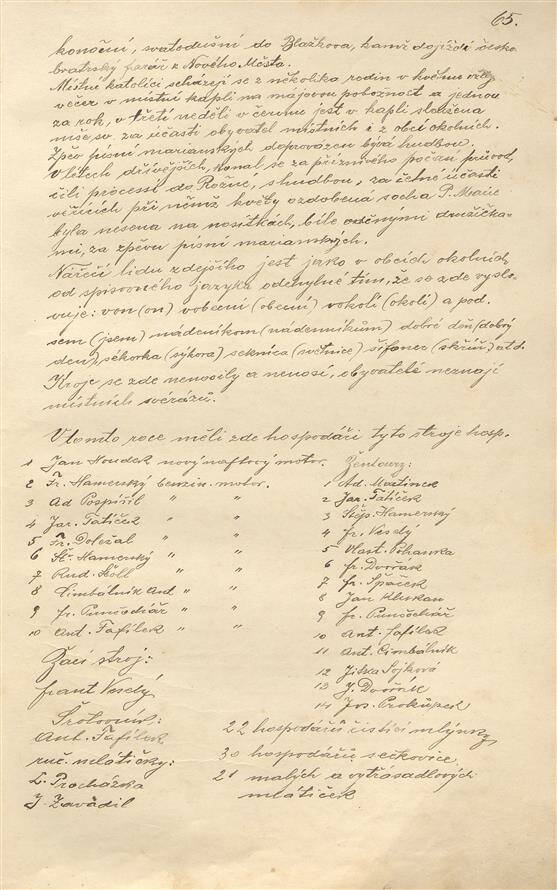 65.
konoční, svatodušní do Blažkova, kamž dojíždí česko
bratrský farář z Nového Města.
Místní katolíci scházejí se z několika rodin v květnu vždy
večer v místní kapli na májovou pobožnost a jednou
za rok, o třetí neděli v červnu jest v kapli sloužena
mše sv. za účasti obyvatel místních i z obcí okolních.
Zpěv písní marianských doprovázen bývá hudbou.
V letech dřívějších, konal se za příznivého počasí průvod,
čili processí do Rožné, s hudbou, za četné účasti
věřících při němž květy ozdobená socha P. Marie
byla nesena na nosítkách, bíle oděnými družička-
mi, za zpěvu písní marianských.
Nářečí lidu zdejšího jest jako v obcích okolních
od spisovného jazyka odchylné tím, že se zde vyslo-
vuje: von (on) vobecní (obecní) vokolí (okolí) a pod.
sem (jsem) nádeníkom (nádenníkům) dobré děň (dobrý
den), sékorka (sýkora) seknica (světnice) šifoner (skříň) atd.
Kroje se zde nenosily a nenosí, obyvatelé neznají
místních svérázů.
V tomto roce měli zde hospodáři tyto stroje hosp.
1 Jan Houdek nový naftový motor.
2 Fr. Hamerský benzin. motor.
3 Ad Pospíšil " "
4 Jar. Tatíček " "
5 Fr. Doležal " "
6 Št. Hamerský " "
7 Rud. Štoll " "
8 Cimbálník Ant " "
9 Fr. Punčochář " "
10 Ant. Fafílek " "
Žací stroj:
Frant Veselý
Šrotovník:
Ant. Fafílek
ruč. mlátičky:
L. Procházka
J. Zavadil
Žentoury:
1 Ad. Martinek
2 Jar. Tatíček
3 Štěp. Hamerský
4 Fr. Veselý
5 Vlast. Pohanka
6 Fr. Dvořák
7 Fr. Špaček
8 Jan Klukan
9 Fr. Punčochář
10 Ant. Fafílek
11 Ant. Cimbálník
12 Jiška Sojková
13 J. Dvořák
14 Jos. Prokůpek
22 hospodářů čistící mlýnky
30 hospodářů sečkovice
21 malých a vytřásadlových
mlátiček